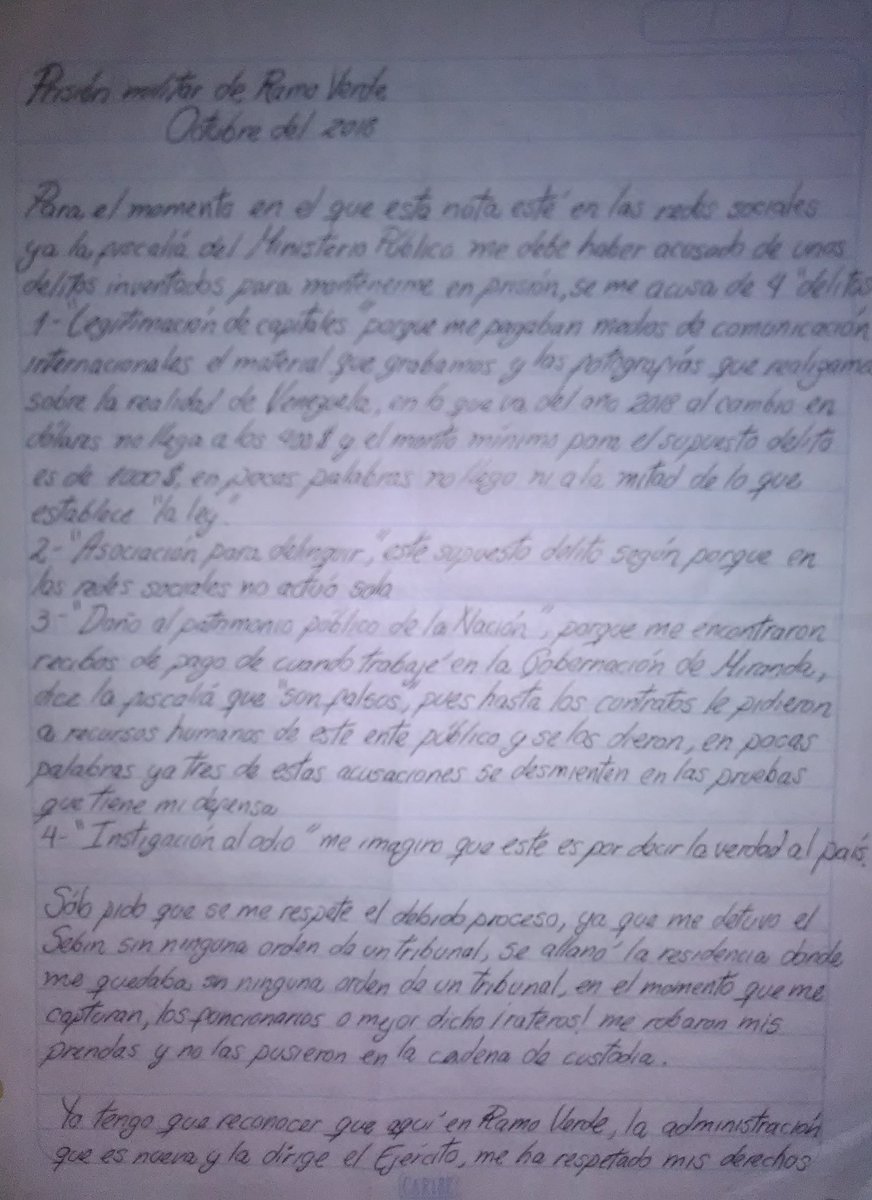 Prisión militar de Ramo Verde
Octubre del 2018
Para el momento en el que esta nota esté en las redes sociales
ya la fiscalía del Ministerio Público me debe haber acusado de unos
delitos inventados para mantenerme en prisión, se me acusa de 4 "delitos
1- "Legitimación de capitales" porque me pagaban medios de comunicación
internacionales el material que grabamos y las fotografías que realizamo
sobre la realidad de Venezuela, en lo que va del año 2018 al cambio en
dólares no llega a los 400$ y el monto mínimo para el supuesto delito
es de 1000$, en pocas palabras no llego ni a la mitad de lo que
establece "la ley".
2- "Asociación para delinquir," este supuesto delito según porque en
las redes sociales no actuó sola
3- "Daño al patrimonio público de la Nación", porque me encontraron
recibos de pago de cuando trabajé en la Gobernación de Miranda,
dice la fiscalía que "son falsos", pues hasta los contratos le pidieron
a recursos humanos de este ente público y se los dieron, en pocas
palabras ya tres de estas acusaciones se desmienten en las pruebas
que tiene mi defensa
4- "Instigación al odio" me imagino que este es por decir la verdad al país.
Sólo pido que se me respete el debido proceso, ya que me detuvo el
Sebin sin ninguna orden de un tribunal, se allanó la residencia donde
me quedaba sin ninguna orden de un tribunal, en el momento que me
capturan, los funcionarios o mejor dicho ¡rateros! me robaron mis
prendas y no las pusieron en la cadena de custodia.
Yo tengo que reconocer que aquí en Ramo Verde, la administración
que es nueva y la dirige el Ejército, me ha respetado mis derechos
CARIBE